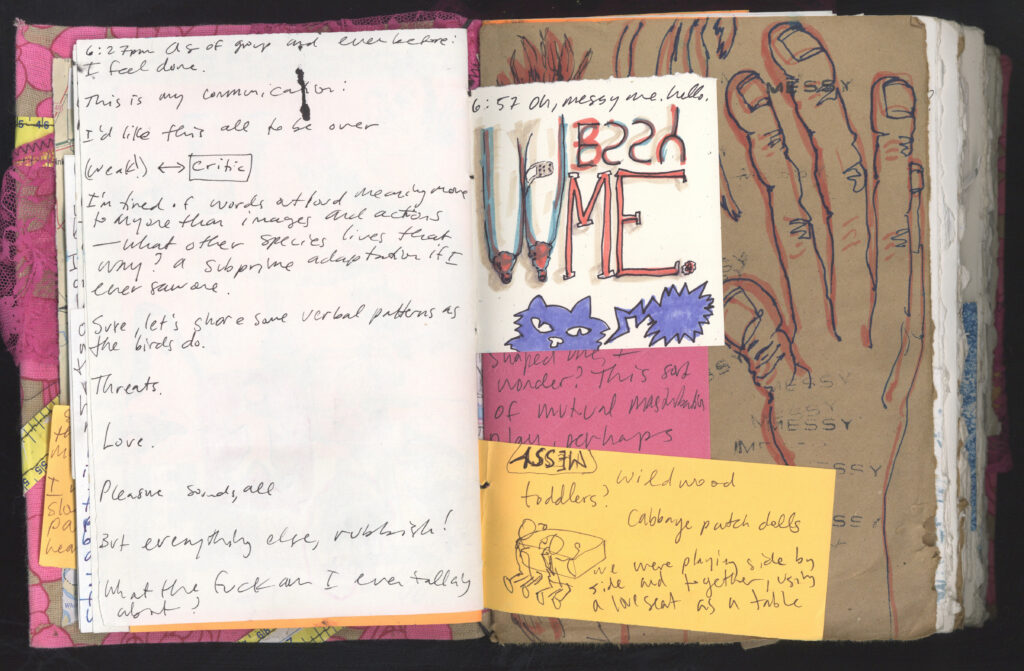 6:27pm As of group and even before:
I feel done.
This is my communication:
I'd like this all to be over
(weak!) ↔ Critic
I'm tired of words out loud meaning more
to anyone than images and actions
— what other species lives that
way? A subprime adaptation if I
ever saw one.
Sure, let's share some verbal patterns as
the birds do.
Threats.
Love.
Pleasure sounds, all
But everything else, rubbish!
What the fuck am I even talking
about?
6:57 Oh, messy me. hello.
ME.
shaped me, I
wonder? This sort
of mutual masturbation
play, perhaps
MESSY
toddlers? Wildwood
Cabbage patch dolls
we were playing side by
side and together, using
a loveseat as a table
MESSY
MESSY
MESSY
MESSY